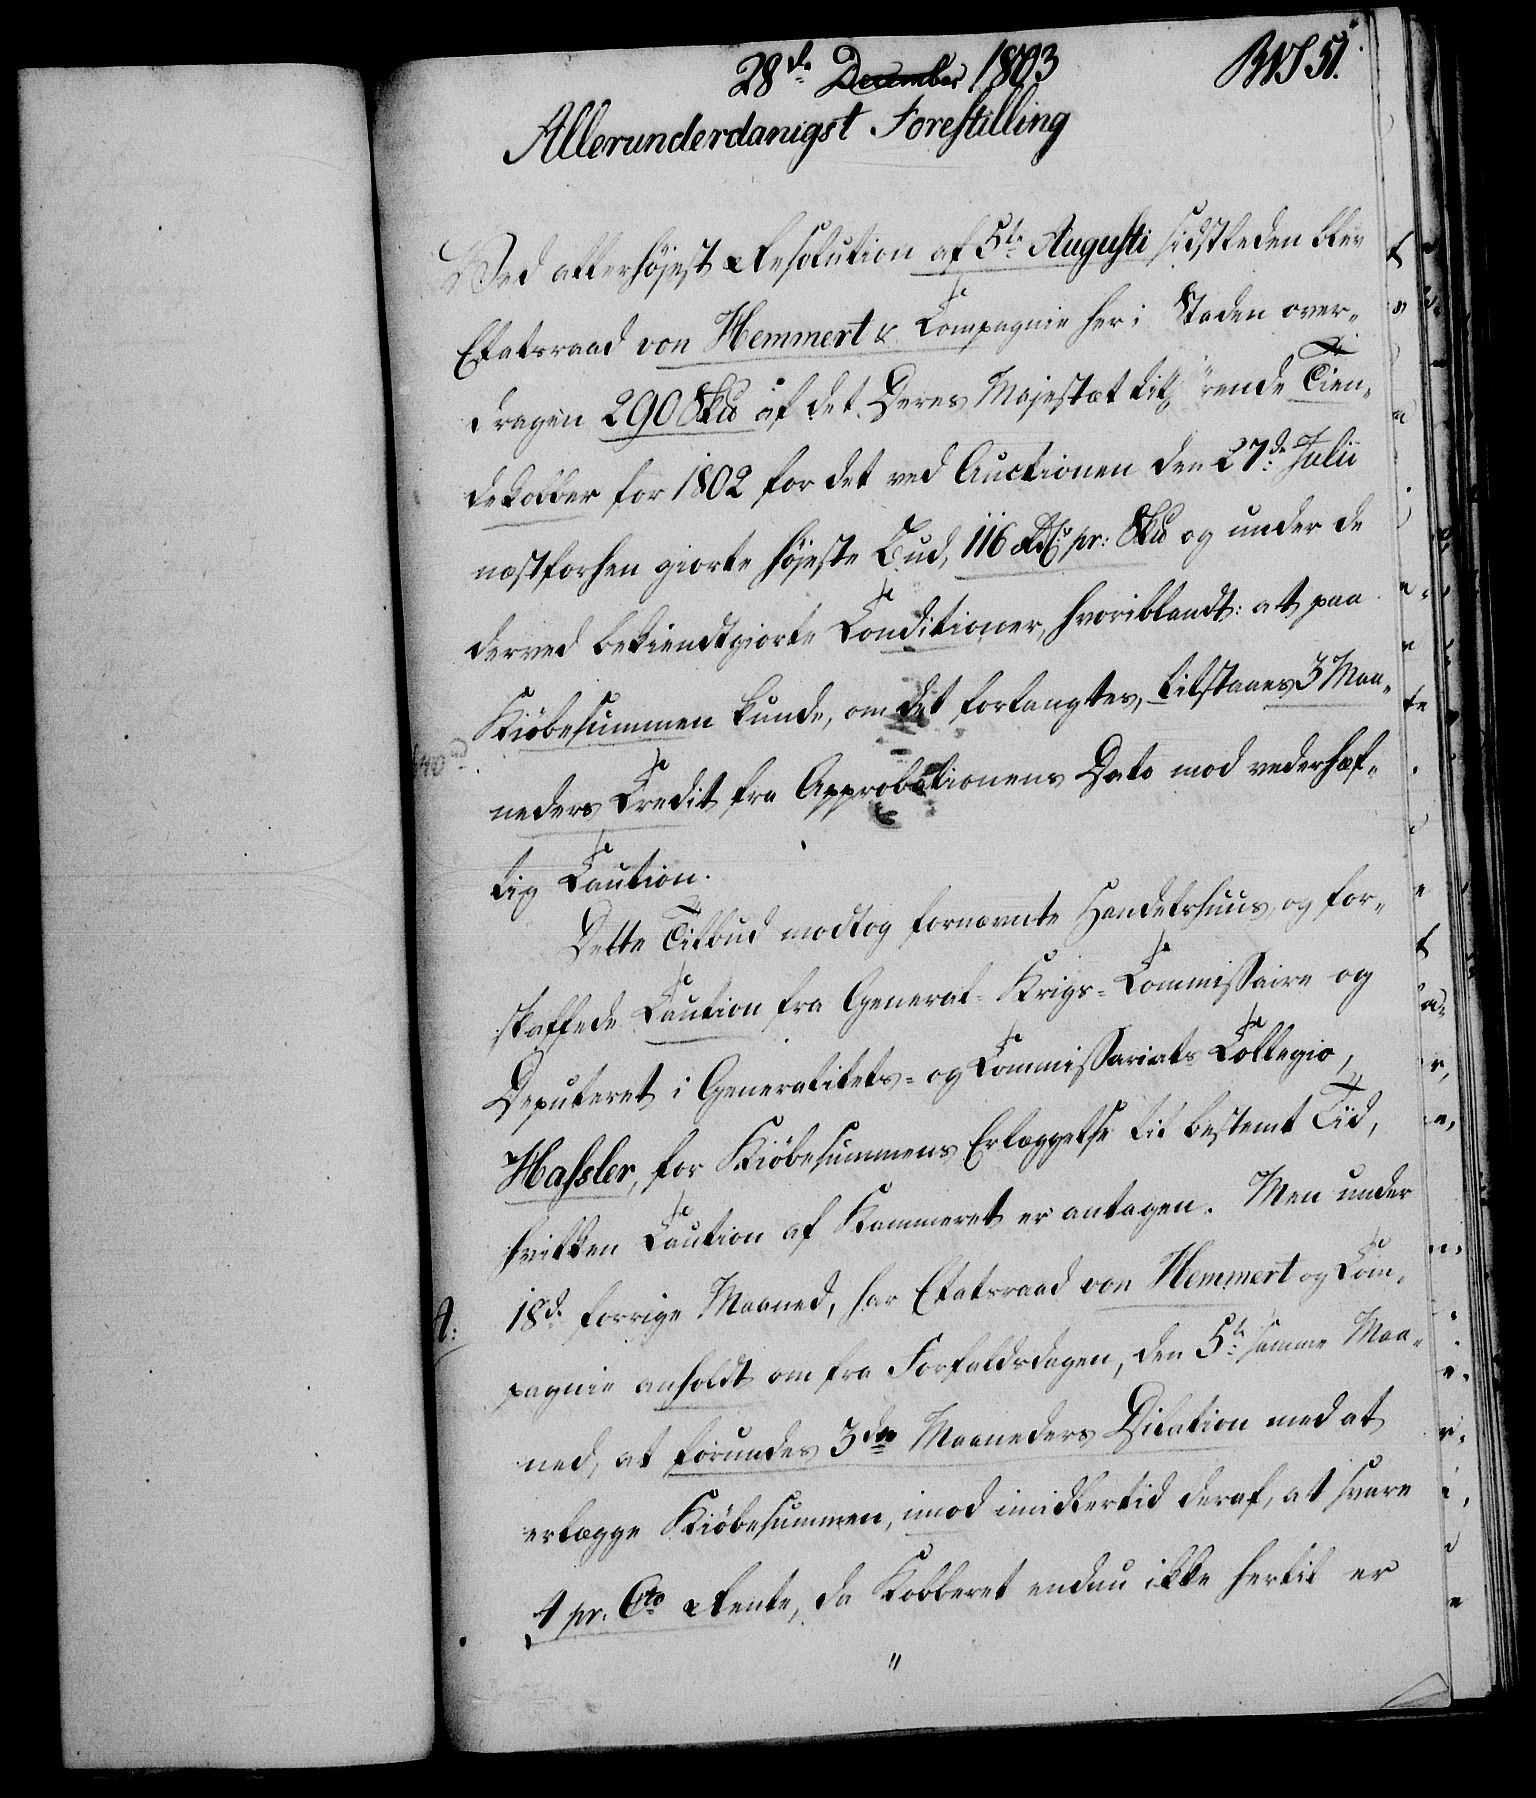 28de December 1803
BNS 51.
Allerunderdanigst Forestilling
Ved allerhøjest Resolution af 5te Augusti sidstleden blev
Etatsraad von Hemmert & Compagnie her i Staden over-
dragen 290 Sk℔ af det Deres Majestæt tilhørende Tien-
dekobber for 1802 for det ved Auctionen den 27de Julii
næstforhen giorte høieste Bud, 116 Rdlr pr: Sk℔ og under de
derved bekiendtgiorte Conditioner, hvoriblandt: at paa
Kiøbesummen kunde, om det forlangtes, tilstaaes 3 Maa-
neders Credit fra Approbationens Dato mod vederhæf-
tig Caution.
Dette Tilbud modtog fornævnte Handelshuus, og for-
skaffede Caution fra General-Krigs-Commissaire og
Deputeret i Generalitets- og Commissariats Collegio,
Hassler, for Kiøbesummens Erlæggelse til bestemt Tiid,
hvilken Caution af Kammeret er antagen. Men under
A: 18de forrige Maaned, har Etatsraad von Hemmert og Com-
pagnie anholdt om fra Forfaldsdagen, den 5te samme Maa-
ned, at forundes 3de Maaneders Dilation med at
erlægge Kiøbesummen, imod imidlertid deraf, at svare
4 pr. Cto Rente, da Kobberet endnu ikke hertil er
"